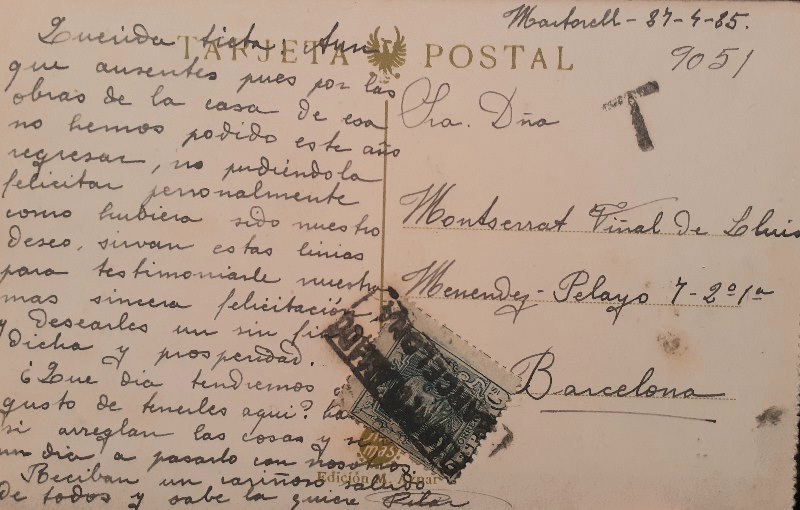 TARJETA POSTAL
Martorell - 27-4-25.
9051
T
Querida tieta: Aun
que ausentes pues por las
obras de la casa de esa
no hemos podido este año
regresar, no pudiéndola
felicitar personalmente
como hubiera sido nuestro
deseo, sirvan estas linias
para testimoniarle nuestra
mas sincera felicitación
y desearles un sin fin
dicha y prosperidad.
¿Que dia tendremos
gusto de tenerles aqui?
si arreglan las cosas y
un dia a pasarlo con nosotros.
Reciban un cariñoso saludo
de todos y sabe la quiere Pilar
Sra. Dña
Montserrat Viñal de Lluis
Menendez-Pelayo 7-2º1ª
Barcelona
BARCELONA
Edición M. Aynar